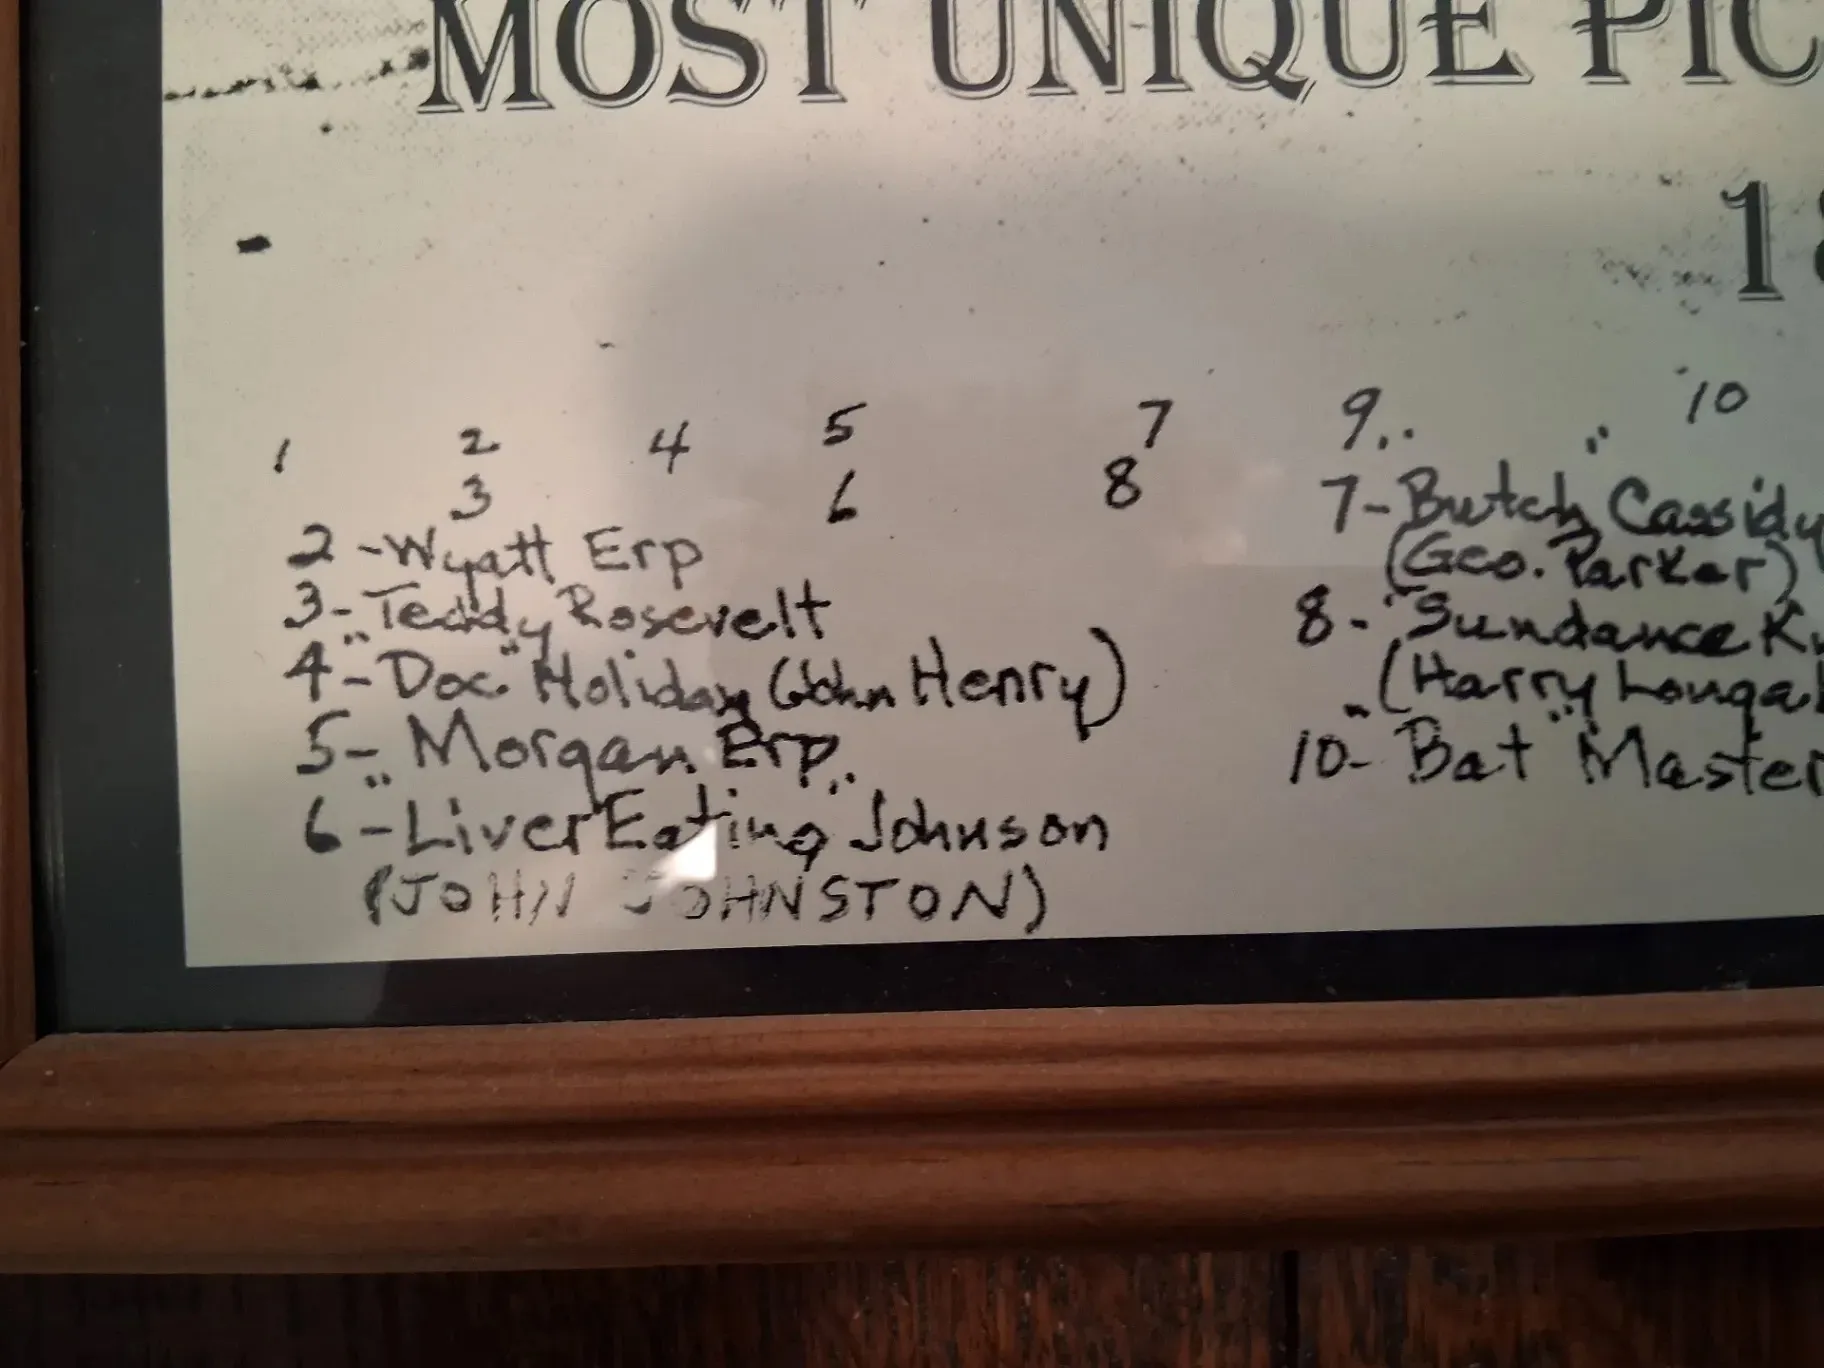 MOST UNIQUE PIC
18
1 2 4 5 7 9 10
3 6 8
2 - Wyatt Erp
3 - Teddy Rosevelt
4 - "Doc." Holiday (John Henry)
5 - Morgan Erp
6 - "Liver Eating" Johnson
(JOHN JOHNSTON)
7 - Butch Cassidy
(Geo. Parker)
8 - "Sundance K
(Harry Longa
10 - "Bat" Master